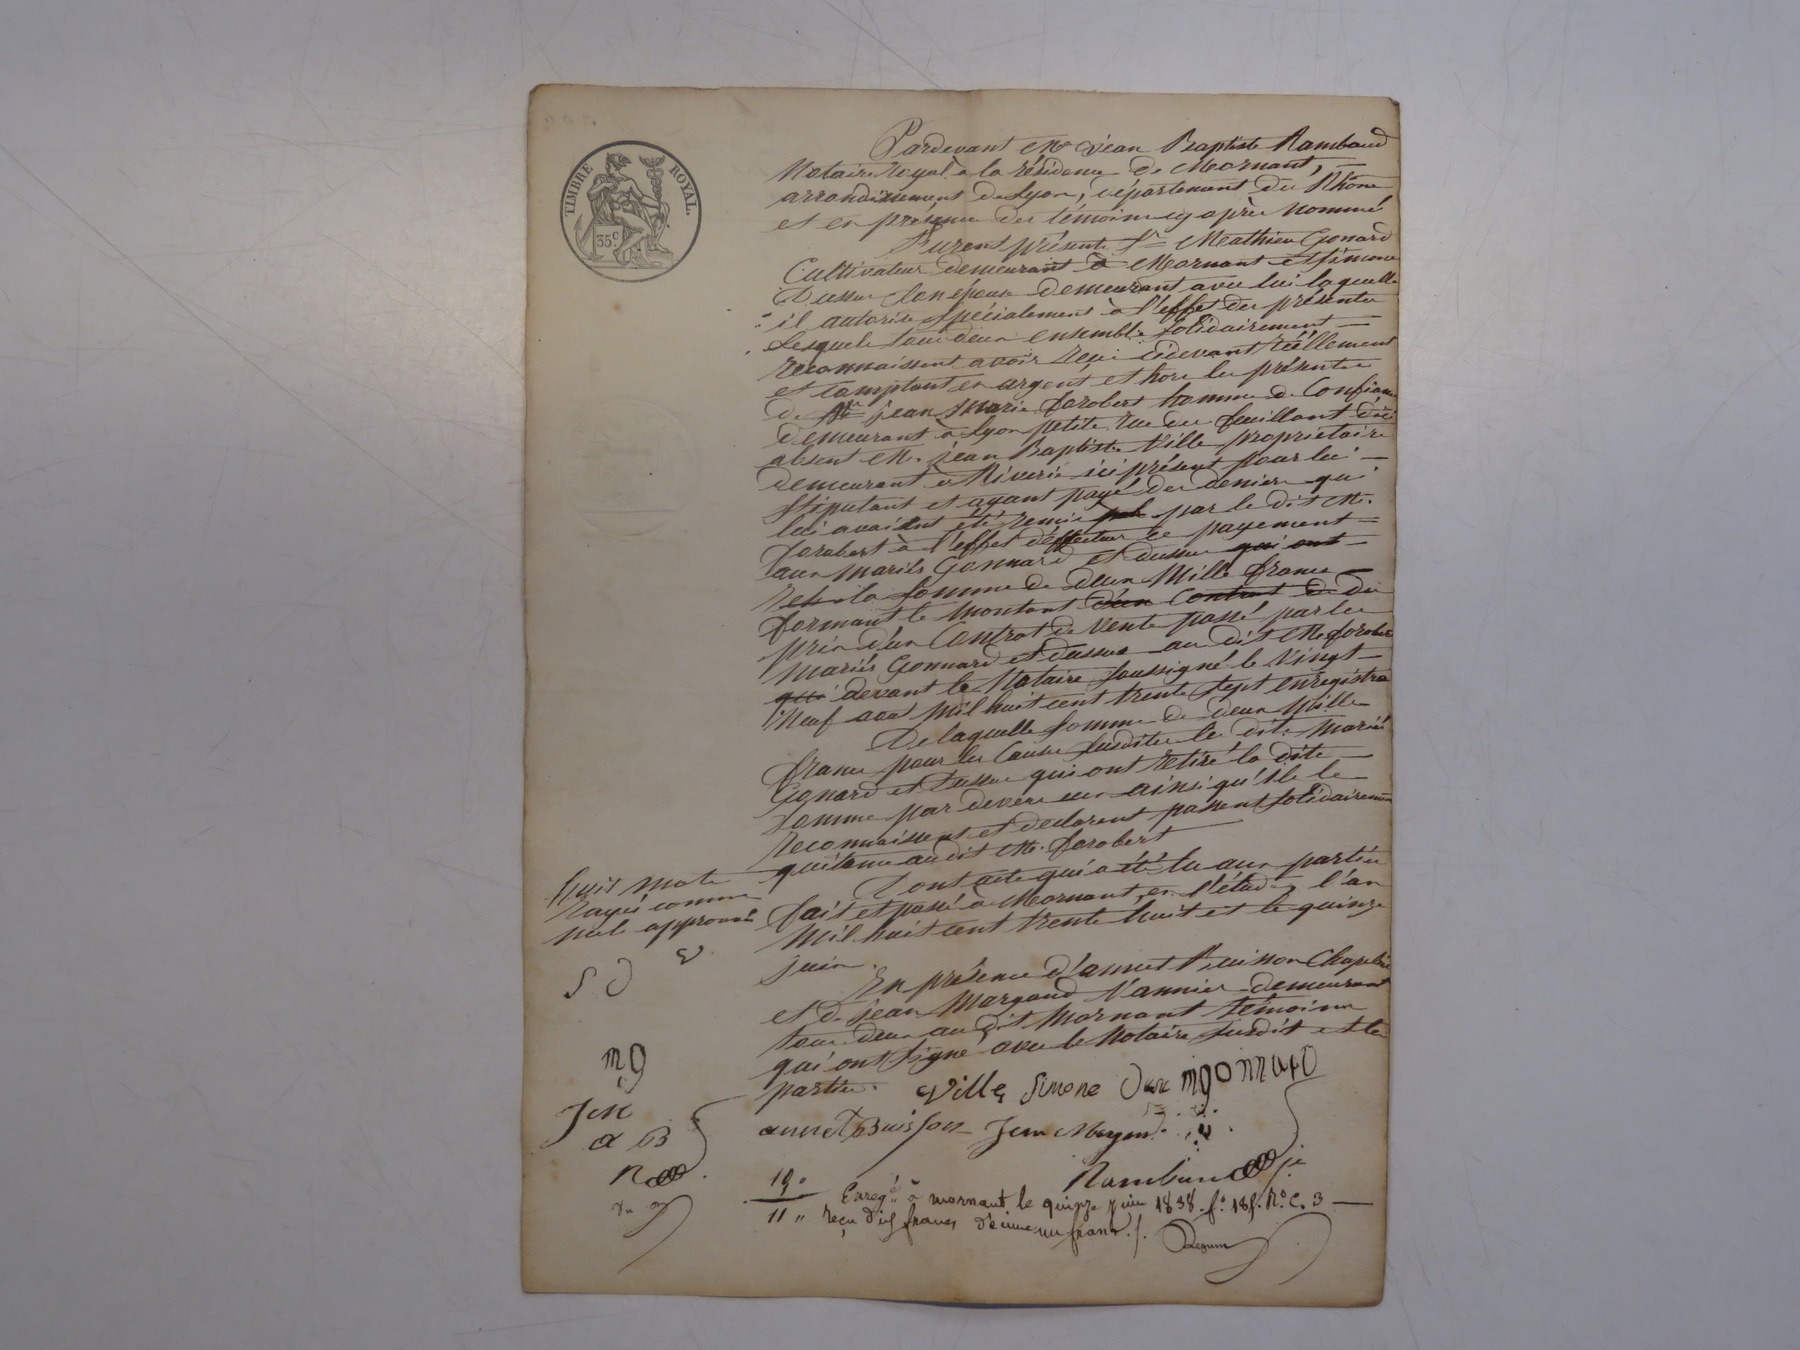 TIMBRE ROYAL.
35c
Pardevant Me Jean Baptiste Rambaud
Notaire royal à la résidence de Mornant,
arrondissement de Lyon, département du Rhône
et en présence des témoins cy après nommés
Furent présents Sr Mathieu Gonard
Cultivateur demeurant à Mornant et Simone
Dussuc son épouse demeurant avec lui laquelle
il autorise spécialement à l'effet des présentes
Lesquels tous deux ensemble solidairement
reconnaissent avoir reçu cidevant réellement
et comptant en argent et hors les présentes
de jean Marie forobert homme de Confiance
demeurant à Lyon petite rue des feuillants d'ici
absent M. jean Baptiste Ville propriétaire
demeurant à Riverie ici présent pour lui
stipulant et ayant payé des deniers qui
lui avaient été remis par le dit M.
forobert à l'effet d'effectuer ce payement
aux mariés Gonnard et dussuc qui ont
la somme de deux Mille francs
formant le montant d'un Contrat de du
prix d'un Contrat de vente passé par les
mariés Gonnard et dussuc au dit M. forobert
qui devant le Notaire soussigné le vingt
Neuf aoa mil huit cent trente sept enregistré
De laquelle somme de deux Mille
francs pour les causes susdites les dits mariés
Gonard et Dussuc qui ont retiré la dite
somme par devers eux ainsi qu'ils le
reconnaissent et declarent passent solidairement
quitance au dit M. forobert
Dont acte qui a été lu aux parties
fait et passé à Mornant, en l'étude, l'an
Mil huit cent trente huit et le quinze
juin.
En présence d'annet Buisson Chapelier
et de jean Margand Vannier demeurant
tous deux au dit Mornant témoins
qui ont signé avec le Notaire susdit et les
parties.
huit mots
rayés comme
nuls approuvés
V
S D
mg
J M
a B
R
Ville Simone Dusuc mgonnard
annet Buisson Jean
Rambaud
10 "
1
11 "
Enregé à mornant le quinze juin 1838. fo. 18 Ro. C. 3
reçu dix francs décime un franc.